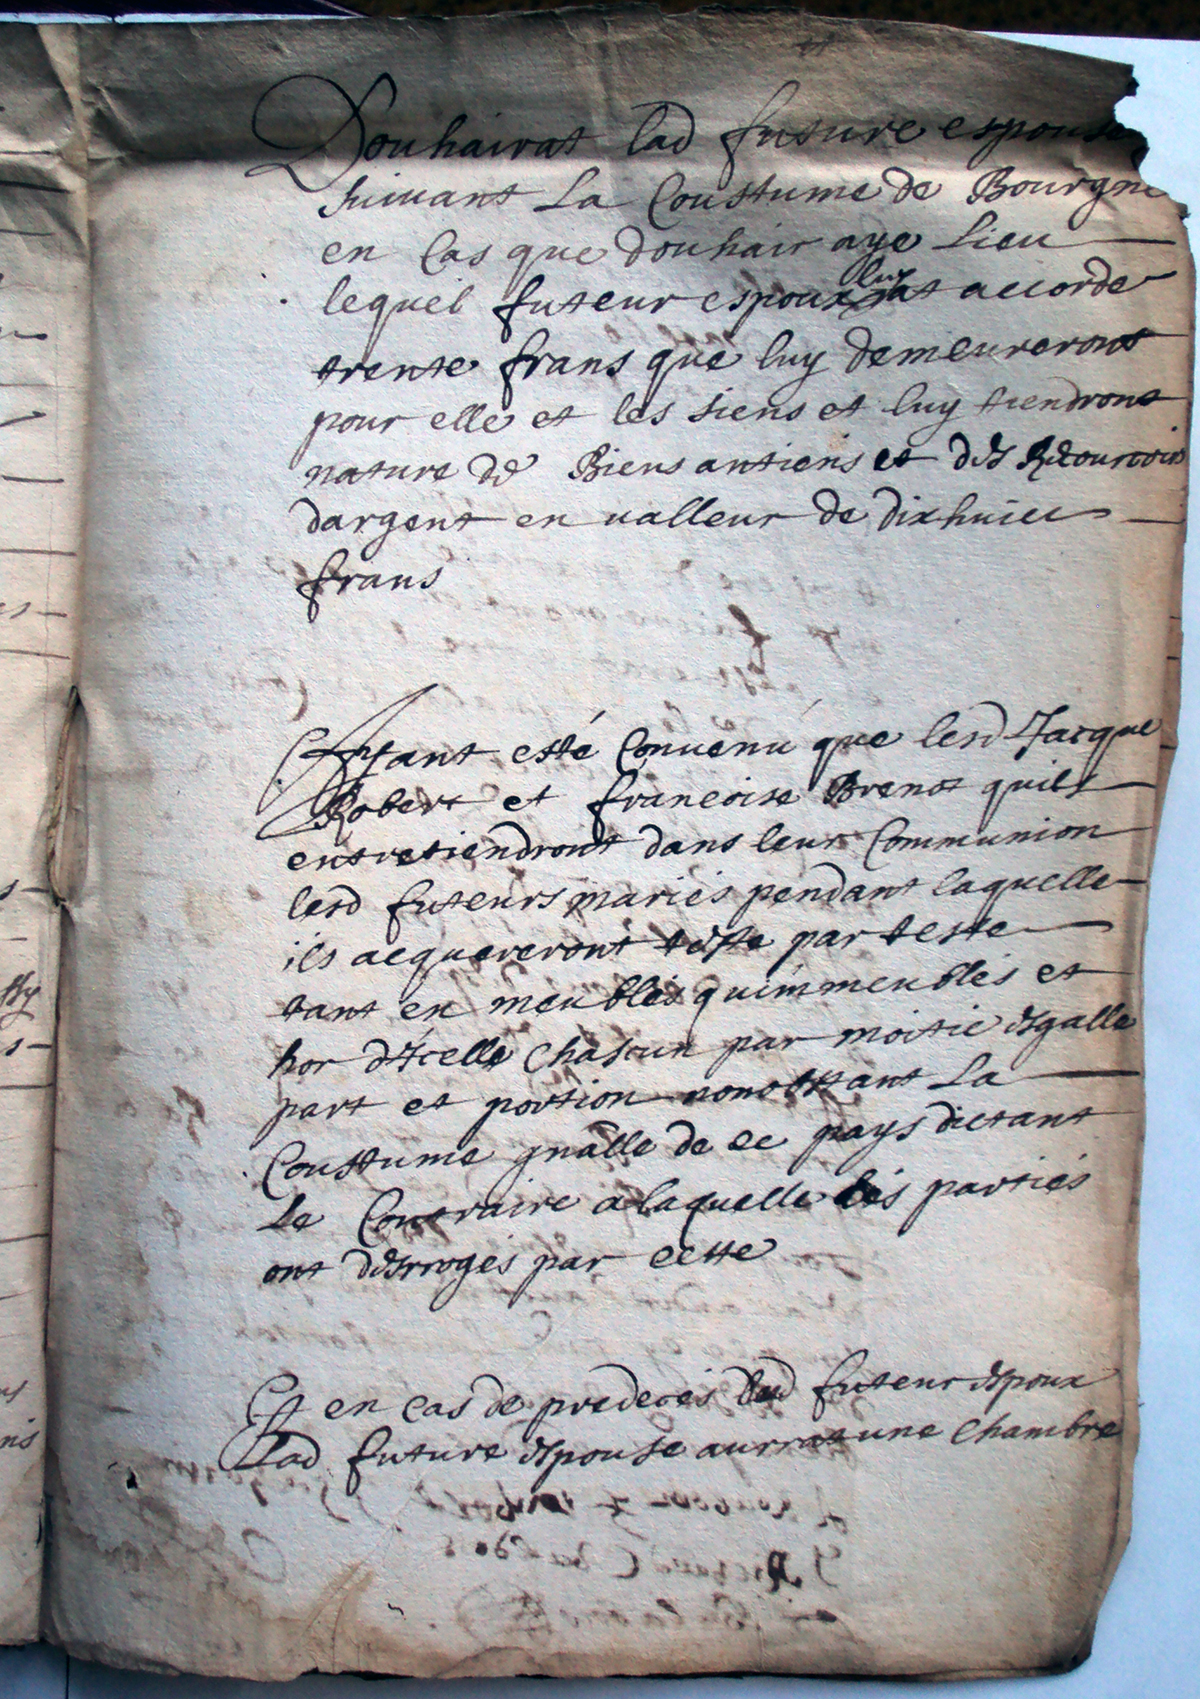 Douhairat lad future espouse
suivant La Coustume de Bourgne
en Cas que douhair aye Lieu
lequel futeur espoux luy at accorde
trente frans que luy demeureront
pour elle et les siens et luy tiendront
nature de Biens antiens et des
dargent en valleur de dixhuict
frans
Ayant esté Convenu que lesd Jacque
Robert et francoise Brenot quils
entretiendront dans leur Communion
lesd futeurs mariés pendant laquelle
ils acquereront teste par teste
tant en meubles quimmeubles et
hor dicelle Chascun par moitie esgalle
part et portion nonobstant La
Coustume gnalle de ce pays dictant
Le Contraire a laquelle les parties
ont desrrogés par cette
Et en cas de predecés dud futeur espoux
Lad future espouse aurrat une Chambre